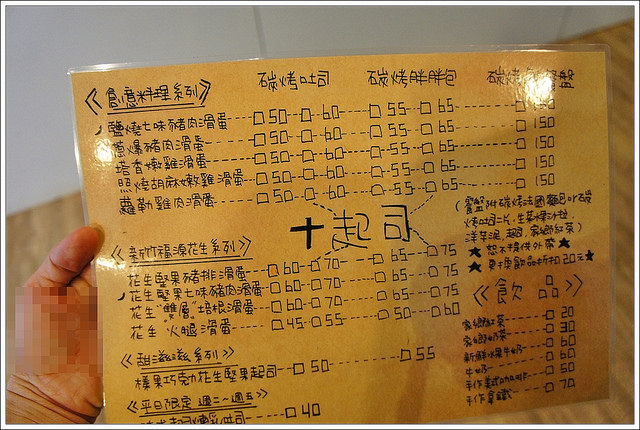 碳烤吐司 碳烤胖胖包 碳烤 盤
《創意料理系列》
鹽燒七味豬肉滑蛋 □50 □60 □55 □65
蔥爆豬肉滑蛋 □50 □60 □55 □65 □150
塔香嫩雞滑蛋 □50 □60 □55 □65 □150
照燒胡麻嫩雞滑蛋 □50 □60 □55 □65 □150
蘿勒雞肉滑蛋 □50 □60 □55 □65 □150
+起司
(餐盤附碳烤法國麵包or碳
烤吐司二片,生菜水果沙拉,
洋芋泥,起司,家鄉紅茶)
★恕不提供外帶★
★更換飲品折扣20元★
《新竹福源花生系列》
花生堅果豬排滑蛋 □60 □70 □65 □75
花生堅果七味豬肉滑蛋 □60 □70 □65 □75
花生"雙層"培根滑蛋 □60 □70 □65 □75
花生 火腿滑蛋 □45 □55 □50 □60
《飲品》
家鄉紅茶 □20
家鄉奶茶 □30
新鮮水果牛奶 □60
牛奶 □50
手作美式咖啡 □60
手作拿鐵 □70
《甜滋滋系列》
榛果巧克力花生堅果起司 □50 □55
《平日限定 週二~週五》
吐司 □40